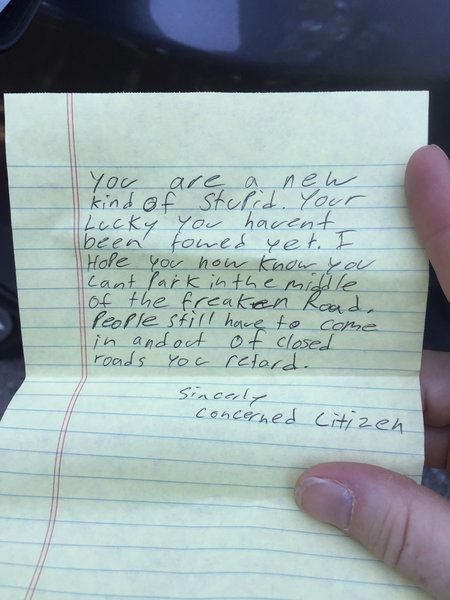 You are a new
kind of stupid. Your
Lucky you havent
been towed yet. I
Hope you now know you
cant park in the middle
of the freaken Road.
People still have to come
in and out of closed
roads you retard.
Sincerly
concerned citizen